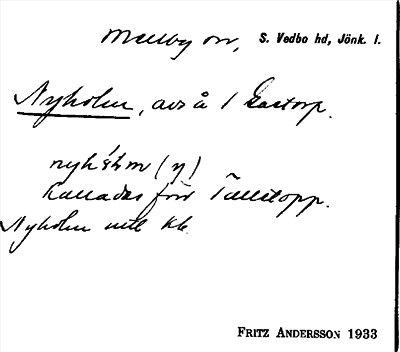 Mellby sn, S. Vedbo hd, Jönk. l.
Nyholm, avs å 1 Kastorp.
nyhǻm (y)
Kallades förr Tallstopp.
Nyholm utl kk.
FRITZ ANDERSSON 1933